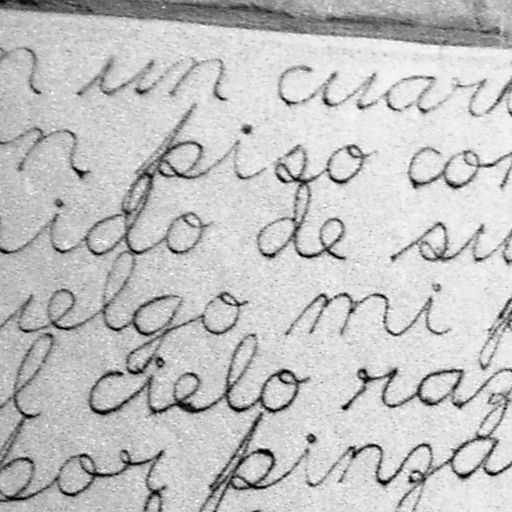 n un cuart
n piso con
uido de su
uelgo mi p
l cielo raz
por pinza